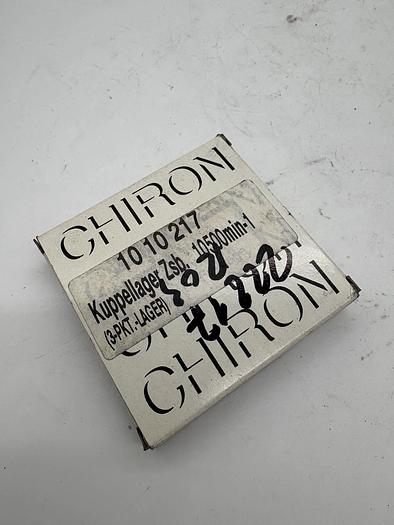 CHIRON
10 10 217
Kuppellager Zsb. 10500min-1
(3-PKT.-LAGER)
CHIRON